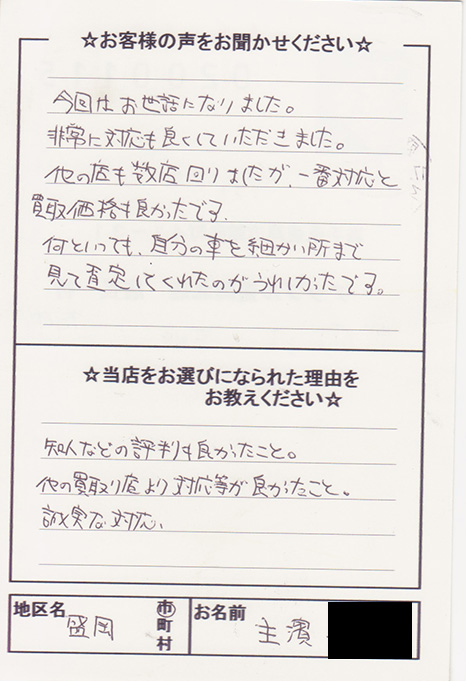 ☆お客様の声をお聞かせください☆
今回はお世話になりました。
非常に対応も良くしていただきました。
他の店も数店回りましたが、一番対応と
買取価格も良かったです.
何といっても、自分の車を細かい所まで
見て査定してくれたのがうれしかったです。
☆当店をお選びになられた理由を
お教えください☆
知人などの評判も良かったこと。
他の買取り店より対応等が良かったこと。
誠実な対応、
地区名 盛岡 市町村 お名前 主濱